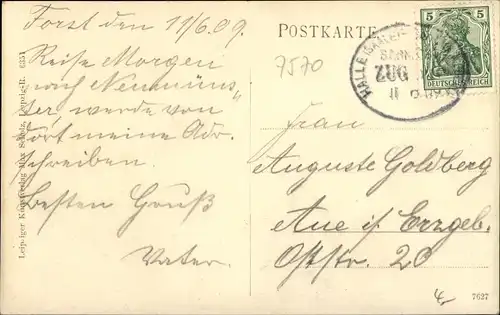 Forst den 11/6.09.
Reise Morgen
nach Neumüns-
ter, werde von
dort meine Adr.
schreiben.
Besten Gruß
Vater.
Leipziger Kunstverlag Max Scholz, Leipzig-R. 6351
POSTKARTE
7570
HALLE (SAALE)
ZUG
11
5 5
DEUTSCHES REICH
Frau
Auguste Goldberg
Aue i/ Erzgeb.
Oststr. 20
7627